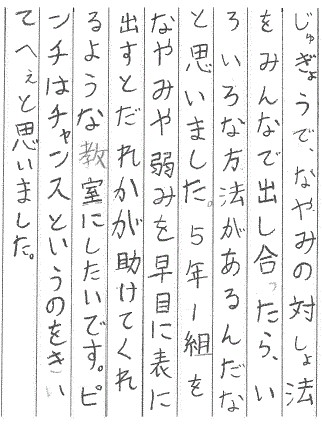 じゅぎょうで、なやみの対しょ法
をみんなで出し合ったら、い
ろいろな方法があるんだな
と思いました。5年1組を
なやみや弱みを早目に表に
出すとだれかが助けてくれ
るような教室にしたいです。ピ
ンチはチャンスというのをきい
てへぇと思いました。